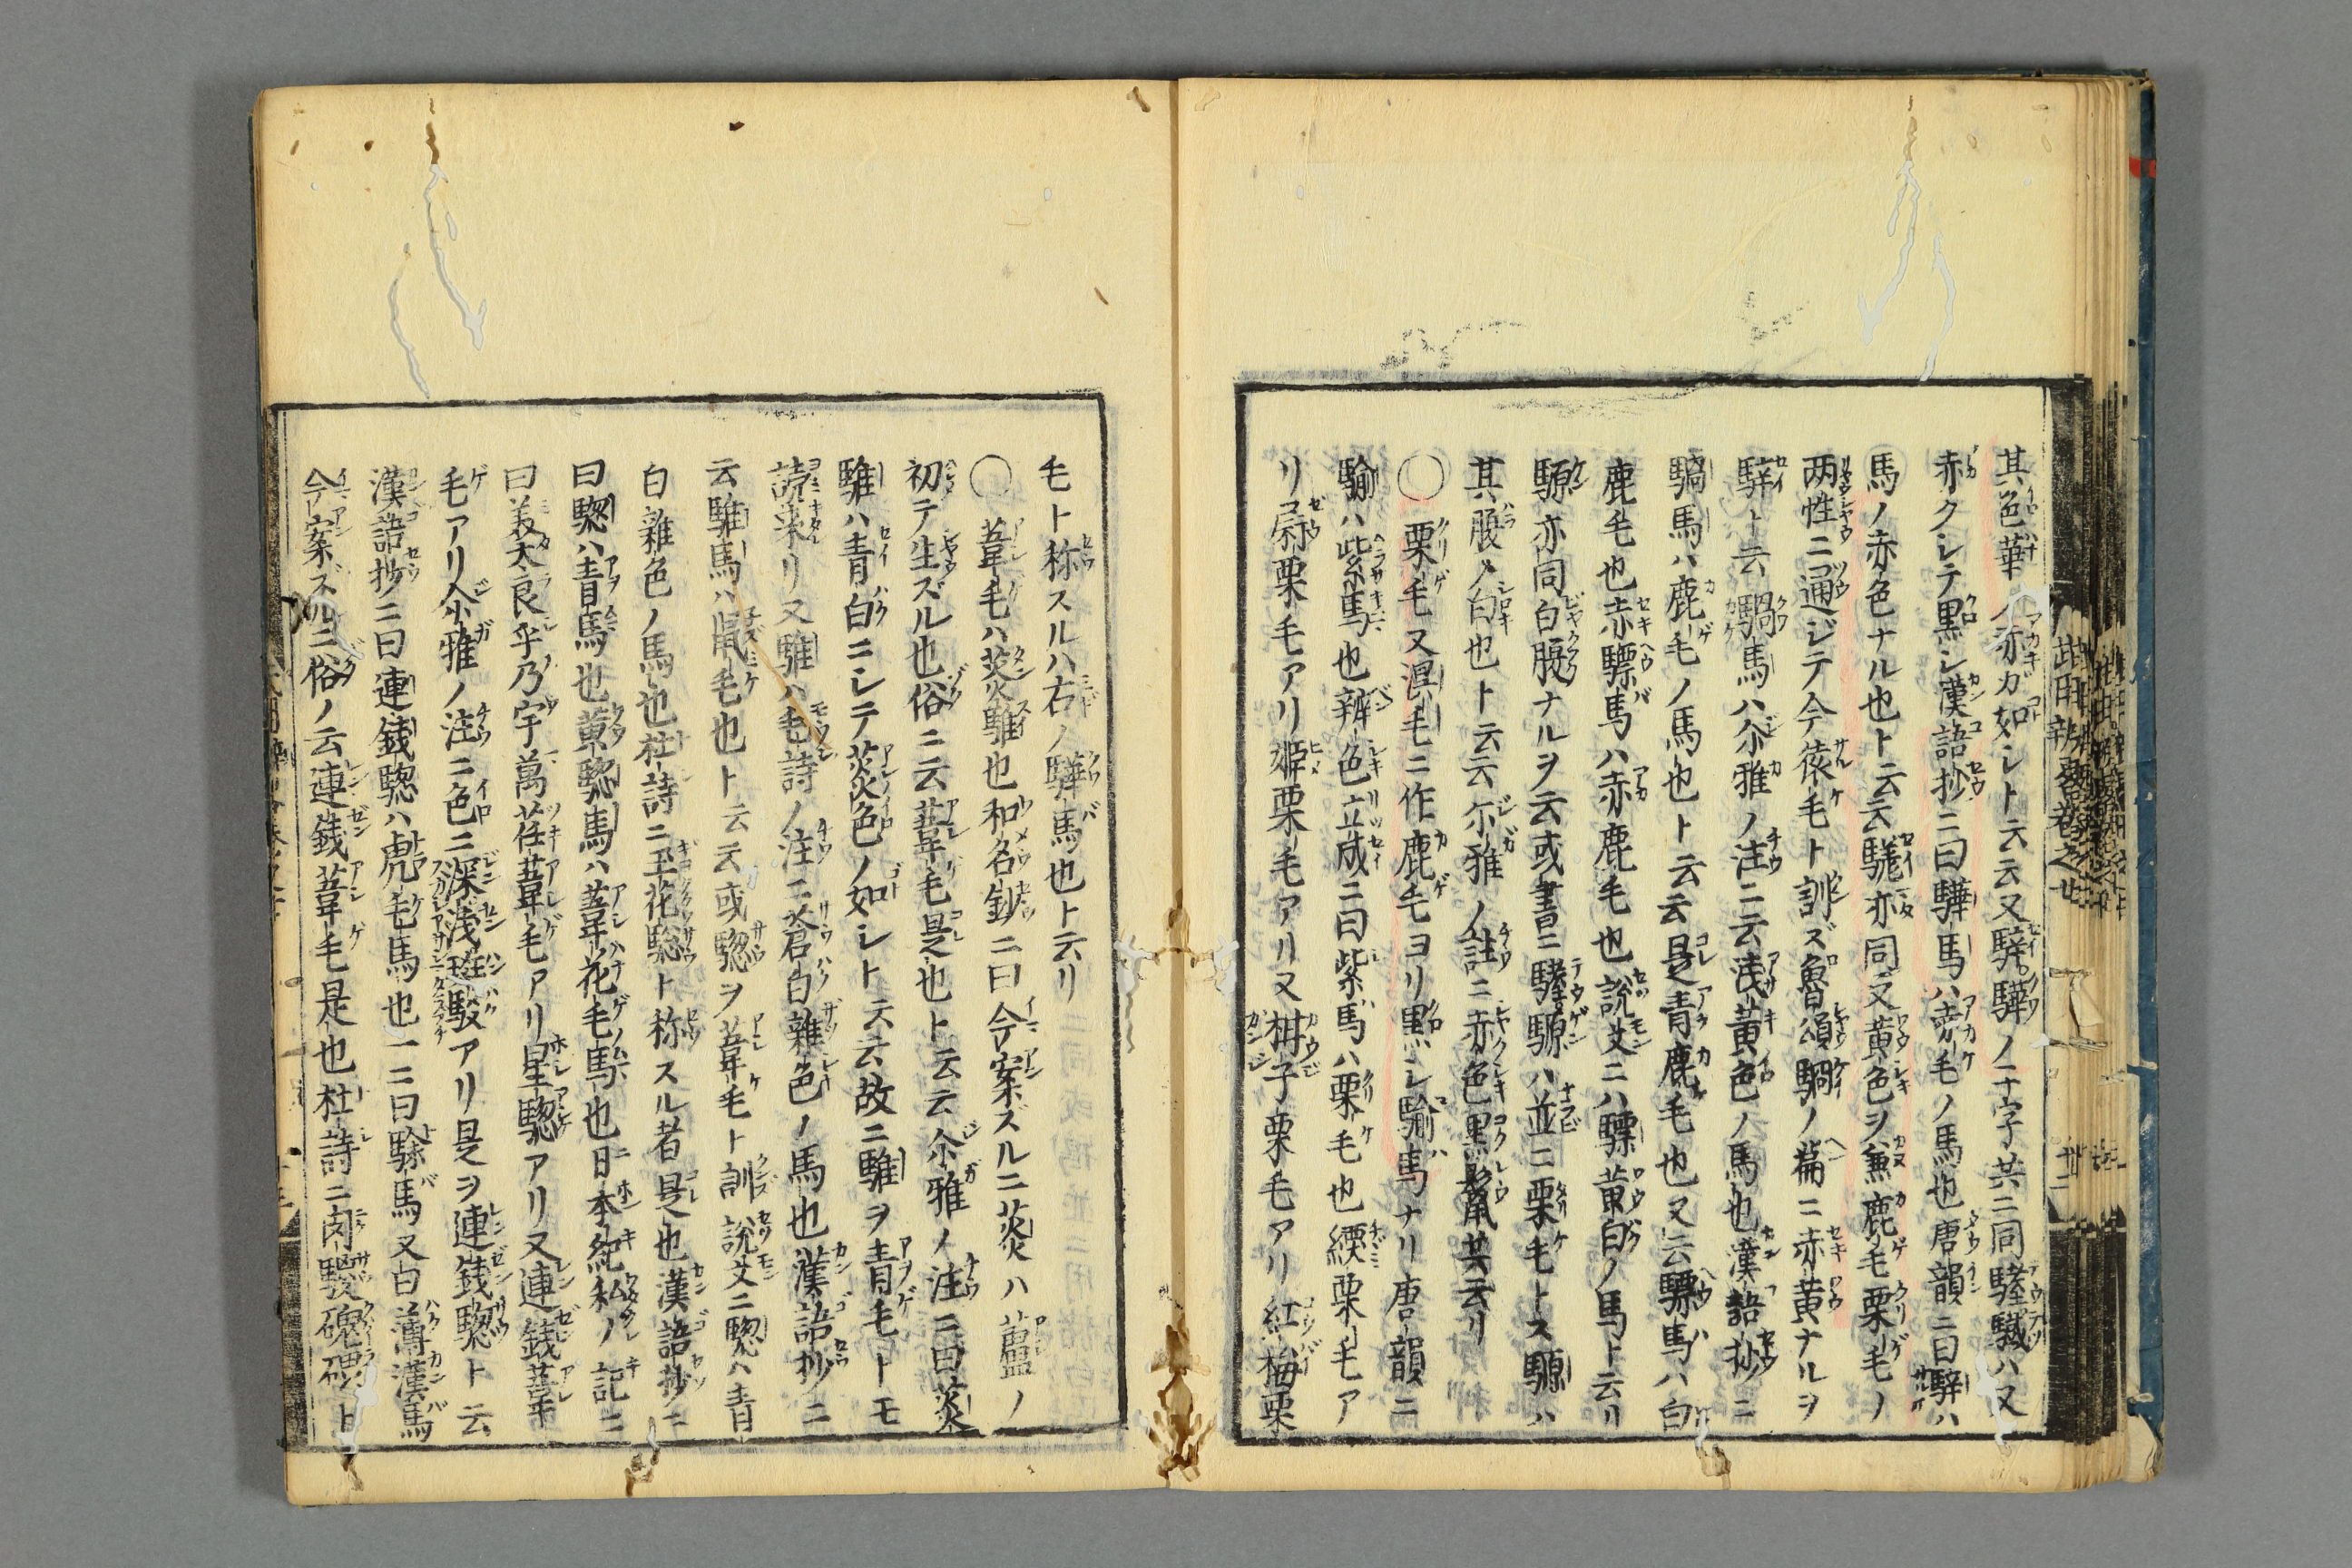 其色華ノ赤キガ如シト云云又騂驊ノ二字共ニ同驖ハ又
赤クシテ黒シ漢語抄ニ曰驊馬ハ赤毛ノ馬也唐韻ニ曰騂ハ
馬ノ赤色ナル也ト云云亦同又黄色ヲ兼鹿毛栗毛ノ
両性ニ通ジテ今猿毛ト訓ズ魯頌駉ノ篇ニ赤黄ナルヲ
騂ト云騧馬ハ尒雅ノ注ニ云浅黄色ノ馬也漢語抄ニ
騧馬ハ鹿毛ノ馬也ト云云是青鹿毛也又云驃馬ハ白
鹿毛也赤驃馬ハ赤鹿毛也説文ニハ驃黄白ノ馬ト云リ
騵亦同白腹ナルヲ云或書ニ騵ハ並ニ栗毛トス騵ハ
其腹ノ白也ト云云尓雅ノ註ニ赤色黒鬣共云リ
○栗毛又騍毛ニ作鹿毛ヨリ黒シ騮馬ナリ唐韻ニ
騮ハ紫馬也辨色立成ニ曰紫馬ハ栗毛也縹栗毛ア
リ尉栗毛アリ姫栗毛アリ又柑子栗毛アリ紅梅栗
毛ト称スルハ右ノ驊馬也ト云リ
○葦毛ハ菼騅也和名鈔ニ曰今案ズルニ菼ハ蘆ノ
初テ生ズル也俗ニ云葦毛是也ト云云尒雅ノ注ニ曰菼
騅ハ青白ニシテ菼色ノ如シト云云故ニ騅ヲ青毛トモ
読来リ又騅ハ毛詩ノ注ニ蒼白雑色ノ馬也漢語抄ニ
云騅馬ハ鼠毛也ト云云或騘ヲ葦毛ト訓説文ニ騘ハ青
白雑色ノ馬也杜詩ニ五花騘ト称スル者是也漢語抄ニ
曰騘ハ青馬也黄騘馬ハ葦花毛馬也日本紀私ノ記ニ
曰美太良乎乃宇萬葦毛アリ星騘アリ又連銭葦
毛アリ尒雅ノ注ニ色ニ深浅斑駁アリ是ヲ連銭騘ト云
漢語抄ニ曰連銭騘ハ虎毛馬也一ニ曰駼馬又白薄漢馬
今案ズルニ俗ノ云連銭葦毛是也杜詩ニ肉駿碨礧ト
此由